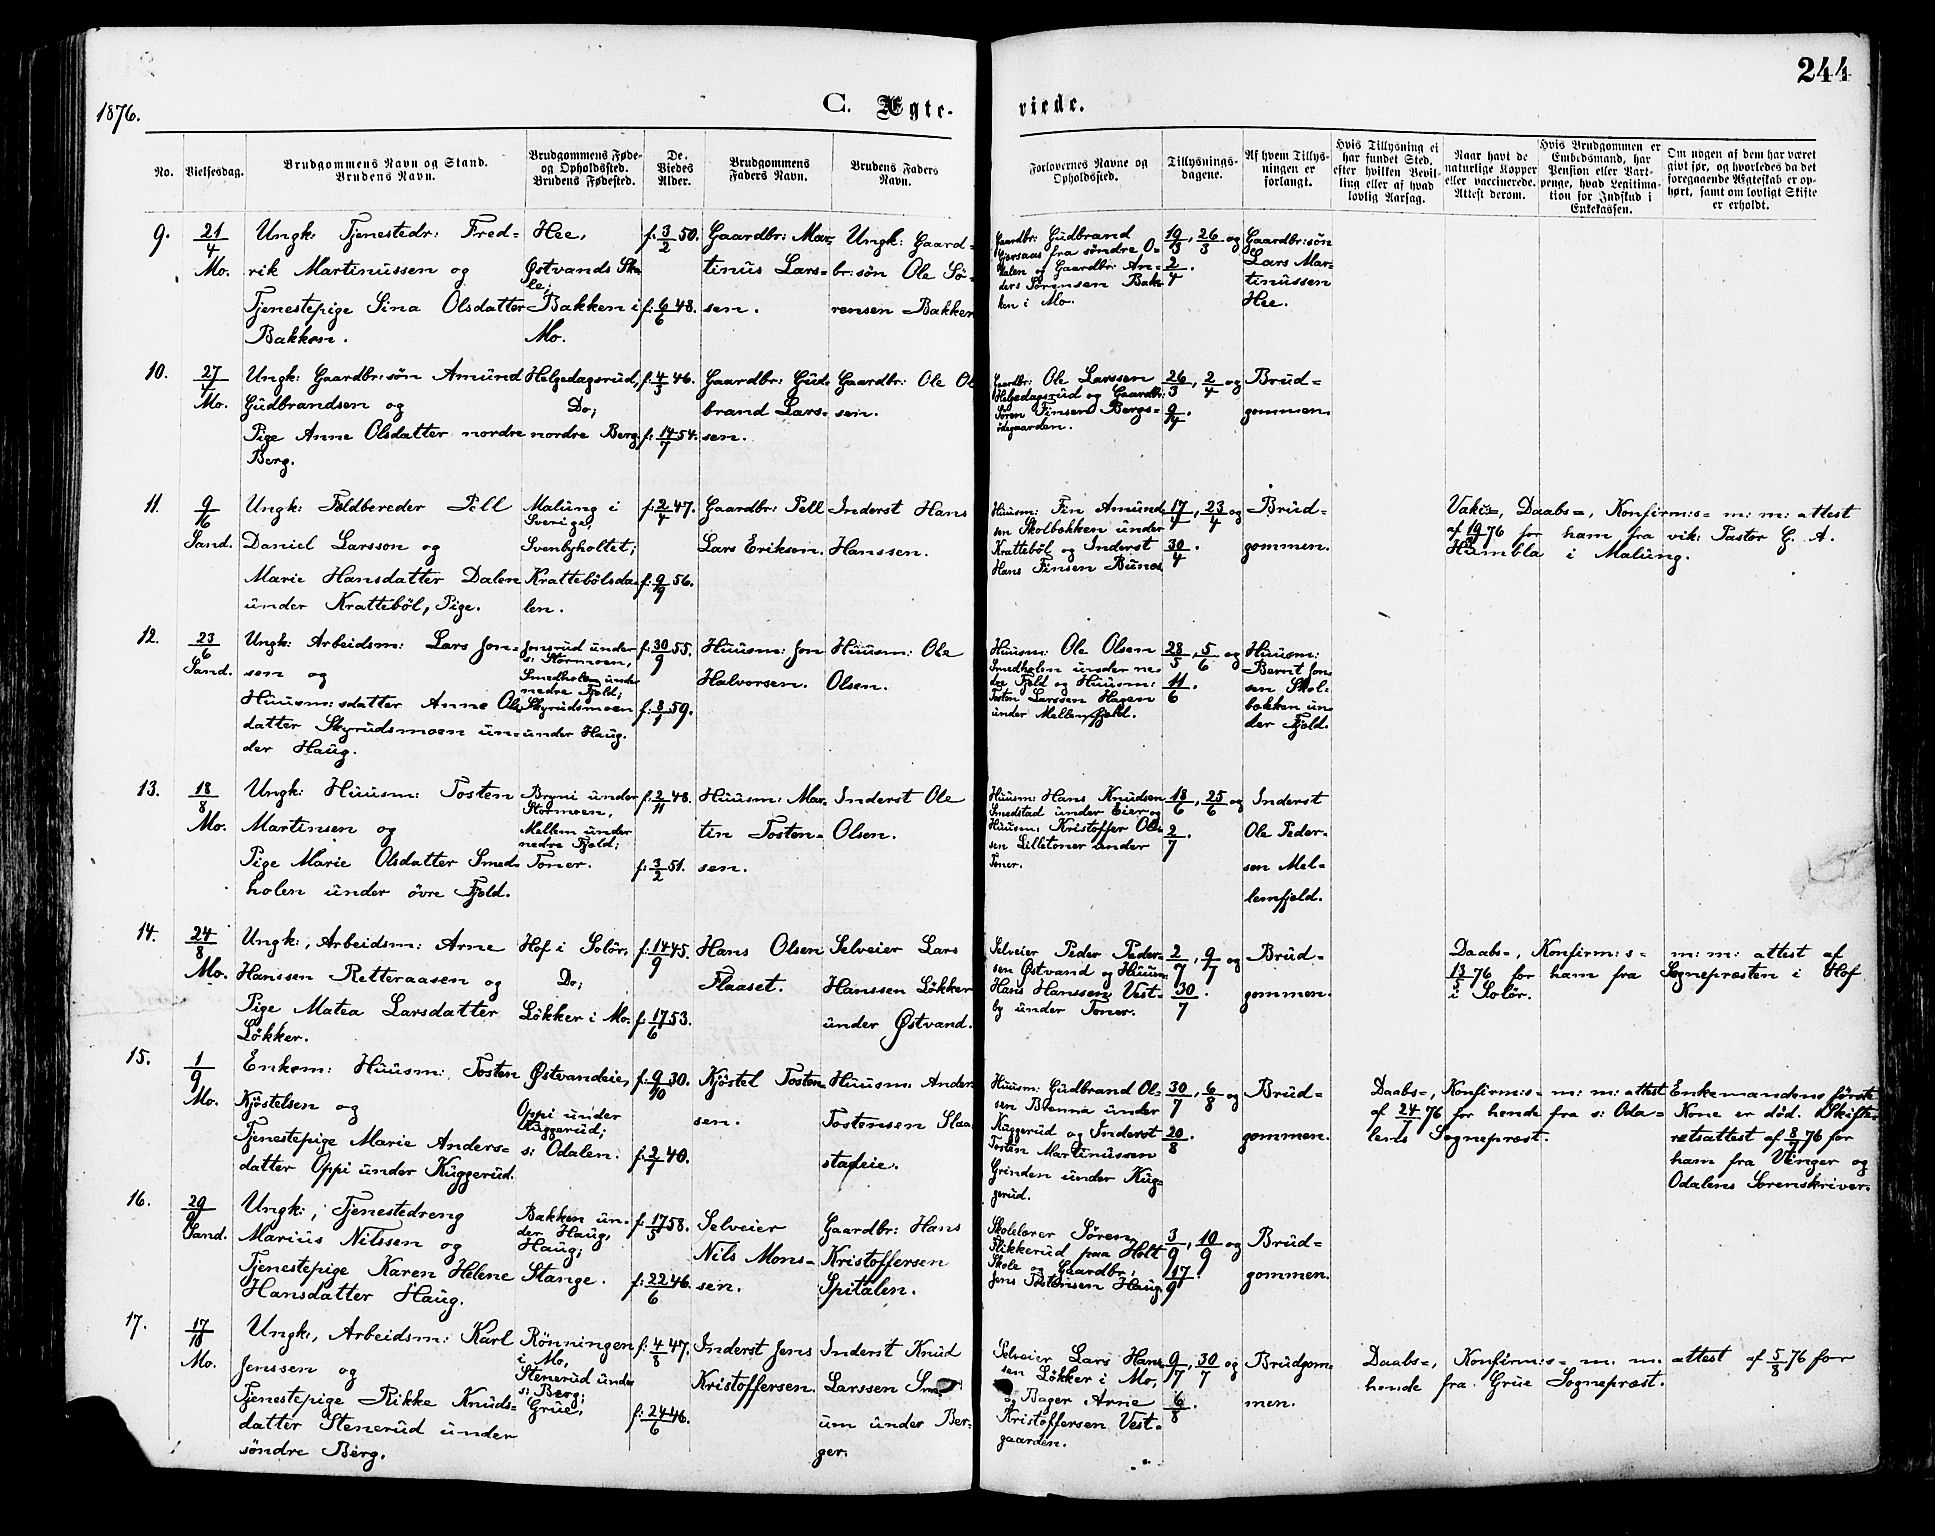 244
1876.
C. Ægte-
viede.
No.
Vielsesdag.
Brudgommens Navn og Stand.
Brudens Navn.
Brudgommens Føde-
og Opholdssted.
Brudens Fødested.
De
Viedes
Alder.
Brudgommens
Faders Navn.
Brudens Faders
Navn.
Forlovernes Navne og
Opholdssted.
Tillysnings-
dagene.
Af hvem Tillys-
ningen er
forlangt.
Hvis Tillysning ei
har fundet Sted,
efter hvilken Bevil-
ling eller af hvad
lovlig Aarsag.
Naar havt de
naturlige Kopper
eller vaccinerede.
Attest derom.
Hvis Brudgommen er
Embedsmand, har
Pension eller Vart-
penge, hvad Legitima-
tion for Indskud i
Enkekassen.
Om nogen af dem har været
givt før, og hvorledes da det
foregaaende Ægteskab er op-
hørt, samt om lovligt Skifte
er erholdt.
9.
21/4
Mo.
Ungk: Tjenestedr: Fred-
rik Martinussen og
Tjenestepige Sina Olsdatter
Bakken.
Hee,
Østvands Sko-
le;
Bakken i
Mo.
f: 3/2 50.
f: 6/6 48.
Gaardbr: Mar-
tinus Lars-
sen.
Ungk: Gaard-
br:søn Ole Sö-
rensen Bakken
Gaardbr: Gudbrand
Gjersaas fra søndre O-
dalen og Gaardbr: An-
ders Sørensen Bak-
ken i Mo.
19/3, 26/3 og
2/4.
Gaardbr:søn
Lars Mar-
tinussen
Hee.
10.
27/4
Mo.
Ungk: Gaardbr:søn Amund
Gudbrandsen og
Pige Anne Olsdatter nordre
Berg.
Helgedagsrud,
Do;
nordre Berg.
f: 4/3 46.
f: 14/7 54.
Gaardbr: Gud-
brand Lars-
sen.
Gaardbr: Ole Ol
sen.
Gaardbr: Ole Larssen
Helgedagsrud og Gaardbr:
Søren Finsen Bergs-
ødegaarden.
26/3, 2/4 og
9/4.
Brud-
gommen.
11.
9/6
Sand.
Ungk: Feldbereder Pell
Daniel Larsson og
Marie Hansdatter Dalen
under Kratteböl, Pige.
Malung i
Sverige,
Svenbyholtet;
Krattebölsda-
len.
f: 2/4 47.
f: 9/9 56.
Gaardbr: Pell
Lars Erikson.
Inderst Hans
Hanssen.
Huusm: Fin Amund-
sen Skolbakken under
Kratteböl og Inderst
Hans Finsen Bunes
17/4, 23/4 og
30/4.
Brud-
gommen.
Daabs-, Konfirm:s- m: m: attest
76 for ham fra vik: Pastor G. A.
Humbla i Malung.
12.
23/6
Sand.
Ungk: Arbeidsm: Lars Jon-
sen og
Huusm:sdatter Anne Ols-
datter Skyrudsmoen un-
der Haug.
Jonsrud under
s: Stormoen,
Smedholen under
nedre Fjeld;
Skyrudsmoen
under Haug.
f: 30/9 55.
59.
Huusm: Jon
Halvorsen.
Huusm: Ole
Olsen.
Huusm: Ole Olsen
Smedholen under ne-
dre Fjeld og Huusm:
Tosten Larssen Hagen
under Mellemfjeld.
28/5, 5/6 og
11/6.
Huusm:
Bernt Jon-
sen Skol-
bakken un-
der Fjeld.
13.
18/8
Mo.
Ungk: Huusm: Tosten
Martinsen og
Pige Marie Olsdatter Smed-
holen under övre Fjeld.
Bryni under
Stormoen,
Mellem under
nedre Fjeld;
Toner.
f: 2/11 48.
f: 3/2 51.
Huusm: Mar-
tin Tosten-
sen.
Inderst Ole
Olsen.
Huusm: Hans Knudsen
Smedstad under Eier og
Huusm: Kristoffer Ol-
sen Lilletoner under
Toner.
18/6, 25/6 og
2/7
Inderst
Ole Peder-
sen Mel-
lemfjeld.
14.
24/8
Mo.
Ungk:, Arbeidsm: Arne
Hanssen Retteraasen og
Pige Matea Larsdatter
Løkker.
Hof i Solör,
Do;
Løkker i Mo.
f: 14/9 45.
f: 17/6 53.
Hans Olsen
Flaaset.
Selveier Lars
Hanssen Løkker
under Østvand.
Selveier Peder Peder-
sen Østvand og Huusm:
Hans Hanssen Vest-
by under Toner.
2/7, 9/7 og
30/7.
Brud-
gommen.
Daabs-, Konfirm:s- m: m: attest af
76 for ham fra Sognepræsten i Hof
i Solör.
15.
1/9
Mo.
Enkem: Huusm: Tosten
Kjöstelsen og
Tjenestepige Marie Anders-
datter Oppi under Kuggerud.
Østvandeie,
Oppi under
Kuggerud;
s: Odalen.
f: 9/10 30.
f: 2/7 40.
Kjöstel Tosten-
sen.
Huusm: Anders
Tostensen Slaa-
stadeie.
Huusm: Gudbrand Ol-
sen Brenna under
Kuggerud og Inderst
Tosten Martinussen
Grinden under Kug-
gerud.
30/7, 6/8 og
20/8.
Brud-
gommen.
Daabs-, Konfirm:s- m: m: attest
af 24/7 76 for hende fra s: Oda-
lens Sognepræst.
Enkemandens første
Kone er død. Skifte-
retsattest af 8/7 76 for
ham fra Vinger og
Odalens Sorenskriver.
16.
29/9
Sand.
Ungk:, Tjenestedreng
Marius Nilssen og
Tjenestepige Karen Helene
Hansdatter Haug.
Bakken un-
der Haug,
Haug;
Stange.
f: 17/5 58.
f: 22/6 46.
Selveier
Nils Mons-
sen.
Gaardbr: Hans
Kristoffersen
Spitalen.
Skolelærer Sören
Flikkerud paa Holt
Skole og Gaardbr:
Jens Tostensen Haug.
3/9, 10/9 og
17/9.
Brud-
gommen.
17.
17/10
Mo.
Ungk:, Arbeidsm: Karl
Jenssen og
Tjenestepige Rikke Knuds-
datter Stenerud under
söndre Berg.
Rönningen
i Mo,
Stenerud under
s: Berg;
Grue,
f: 4/8 47.
f: 24/6 46.
Inderst Jens
Kristoffersen.
Inderst Knud
Larssen
um under Ber-
ger.
Selveier Lars Hans-
sen Løkker i Mo,
og Bager Arne
Kristoffersen Vest-
gaarden.
9/7, 30/7 og
6/8.
Brudgom-
men.
Daabs-, Konfirm:s- m. m. attest af 5/8 76 for
hende fra Grue Sognepræst.